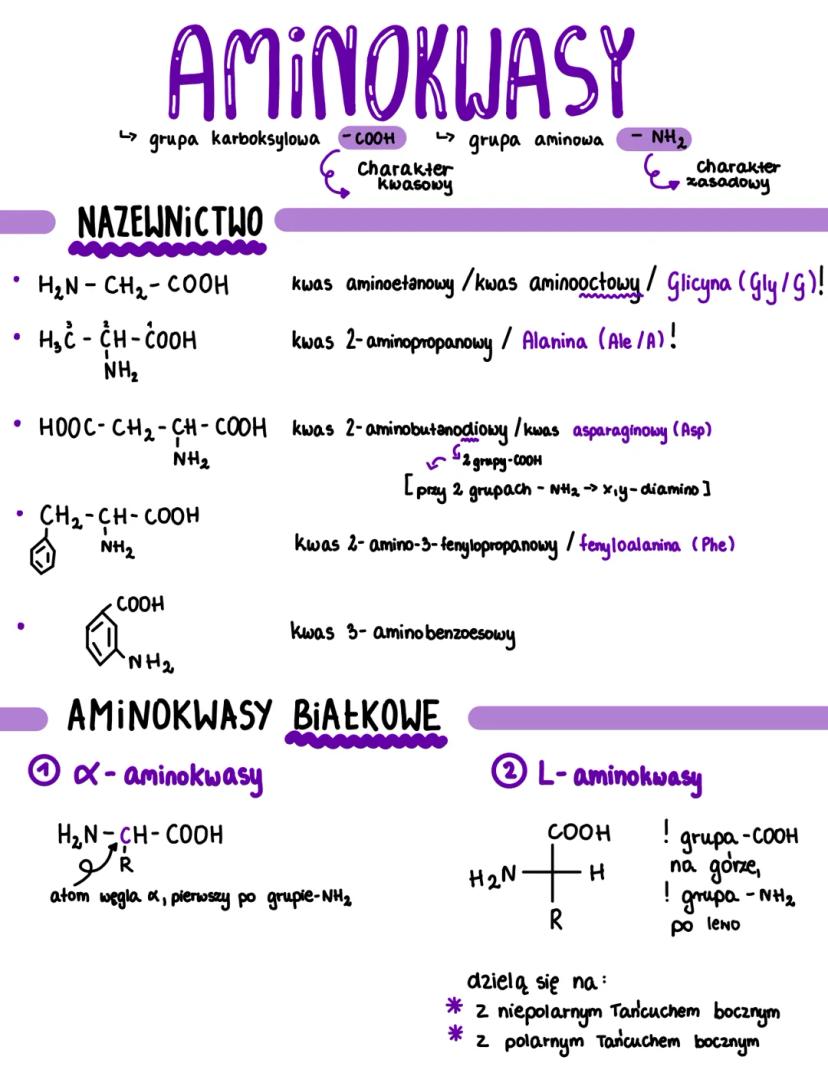 AMINOKWASY
↳ grupa karboksylowa -COOH ↳ grupa aminowa - NH₂
Charakter kwasowy
charakter zasadowy
NAZEWNICTWO
• H₂N - CH₂ - COOH kwas aminoetanowy / kwas aminooctowy / Glicyna (Gly/G)!
• H₃C - CH - COOH kwas 2-aminopropanowy / Alanina (Ale/A)!
3 2 1
NH₂
• HOOC - CH₂ - CH - COOH kwas 2-aminobutanodiowy / kwas asparaginowy (Asp)
NH₂
2 grupy-COOH
[przy 2 grupach - NH₂ → x,y-diamino]
• CH₂ - CH - COOH
NH₂
kwas 2-amino-3-fenylopropanowy / fenyloalanina (Phe)
COOH
• kwas 3-aminobenzoesowy
NH₂
AMINOKWASY BIAŁKOWE
① α-aminokwasy
H₂N - CH - COOH
R
atom węgla α, pierwszy po grupie-NH₂
② L-aminokwasy
COOH
H₂N H
R
! grupa -COOH
na górze,
! grupa - NH₂
po lewo
dzielą się na:
* z niepolarnym łańcuchem bocznym
* z polarnym łańcuchem bocznym